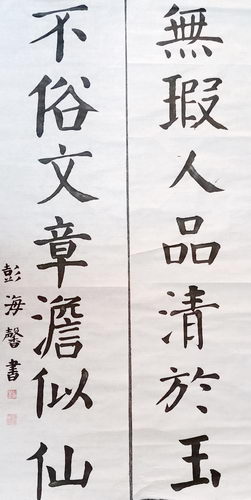 無瑕人品清於玉
不俗文章澹似仙
彭海馨書